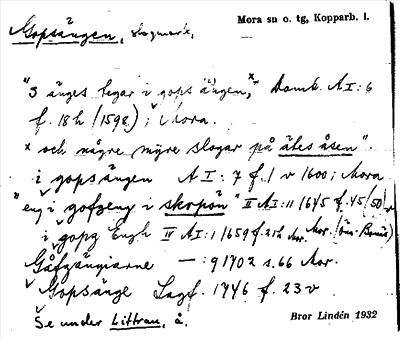 Gopsängen, slogmark,
Mora sn o. tg, Kopparb. l.
"3 änges tegar i gops ängen,x" Domk. A I: 6
f. 18 h (1598); i Mora.
x och någre myre slogar på äles åsen".
i gopsängen A I: 7 f. 1 v 1600; Mora
"eng i gofzeng i skopön" II A I: 11 1645 f. 45 (50) v
i gopz Engh IV A I: 1 1659 f. 25 h Mor. Mor.
Gåfzängiarne — : 9 1702 s. 66 Mor.
Gopsänge Lagf. 1746 f. 23 v
Se under Littran, å.
Bror Lindén 1932